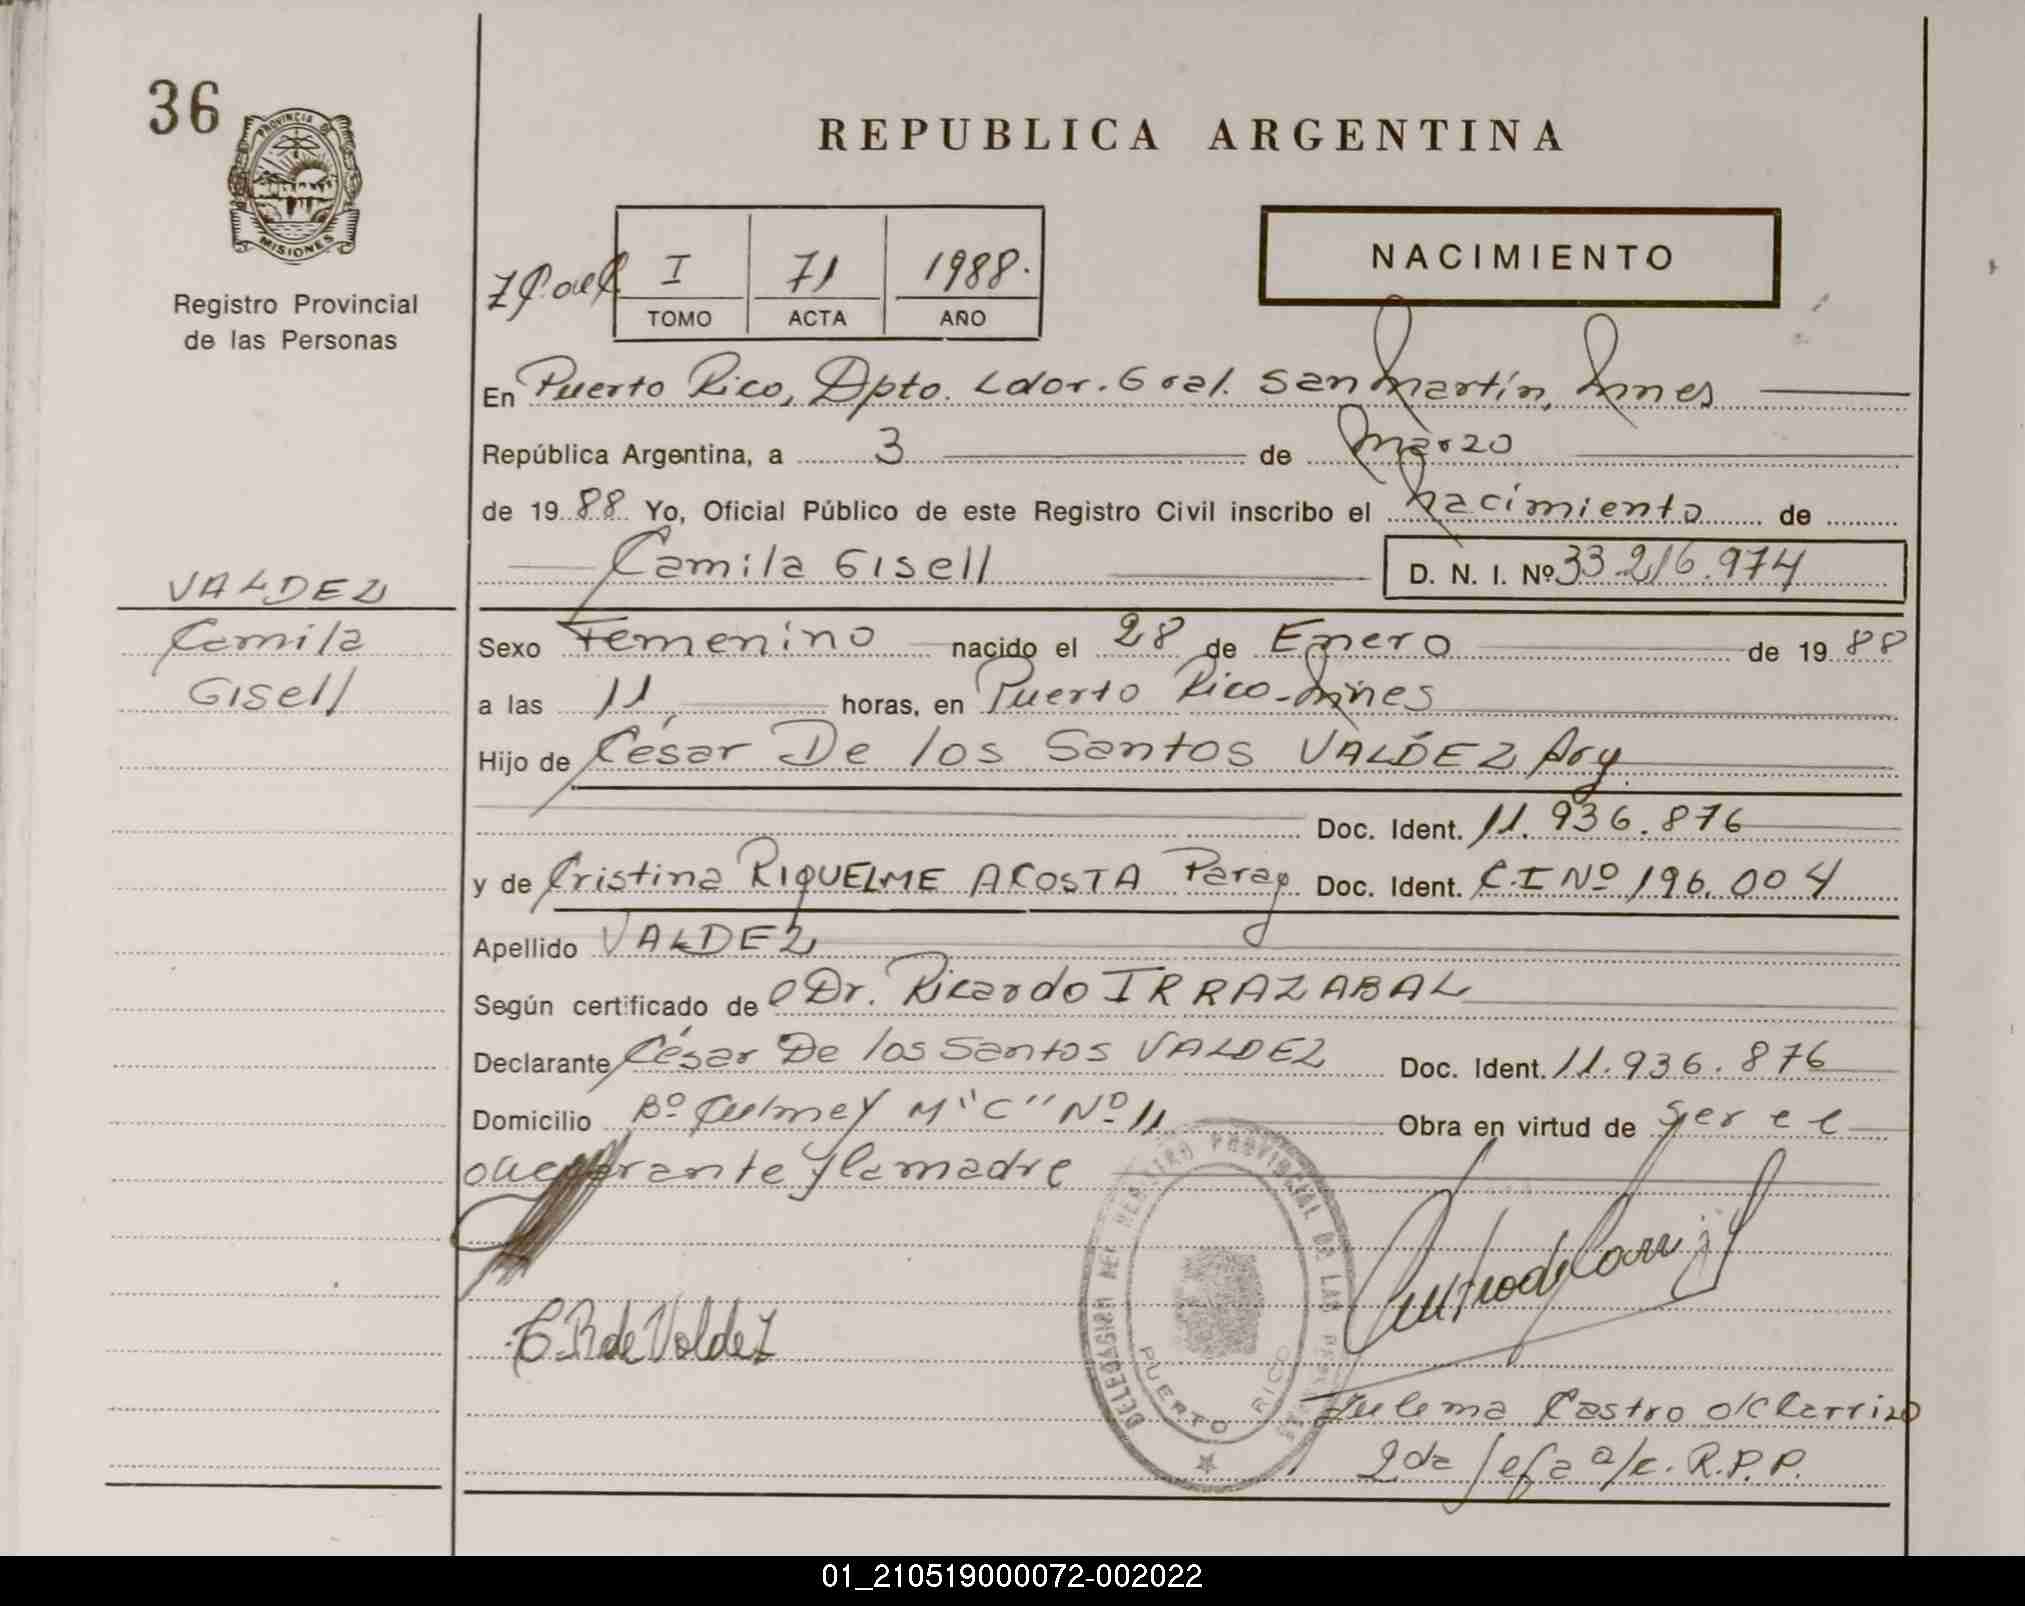 36
PROVINCIA DE
MISIONES
Registro Provincial
de las Personas
REPUBLICA ARGENTINA
I 71 1988.
TOMO ACTA AÑO
NACIMIENTO
En Puerto Rico, Dpto. Ldor. Gral. San Martín, Mnes
República Argentina, a 3 de Marzo
de 1988 Yo, Oficial Público de este Registro Civil inscribo el Nacimiento de
Camila Gisell D. N. I. Nº 33.216.974
VALDEZ
Camila
Gisell
Sexo Femenino nacido el 28 de Enero de 1988
a las 11, horas, en Puerto Rico-Mnes
Hijo de César De los Santos VALDEZ Arg.
Doc. Ident. 11.936.876
y de Cristina RIQUELME ACOSTA Parag Doc. Ident. C.I Nº 196.004
Apellido VALDEZ
Según certificado de Dr. Ricardo IRRAZABAL
Declarante César De los Santos VALDEZ Doc. Ident. 11.936.876
Domicilio Bº Culmey M"C" Nº 11 Obra en virtud de ser el
y la madre
DELEGACION DEL REGISTRO PROVINCIAL DE LAS PERSONAS
PUERTO RICO
C.R de Valdez
Zulema Castro d/Carrizo
2da Jefa a/c. R.P.P.
01_210519000072-002022